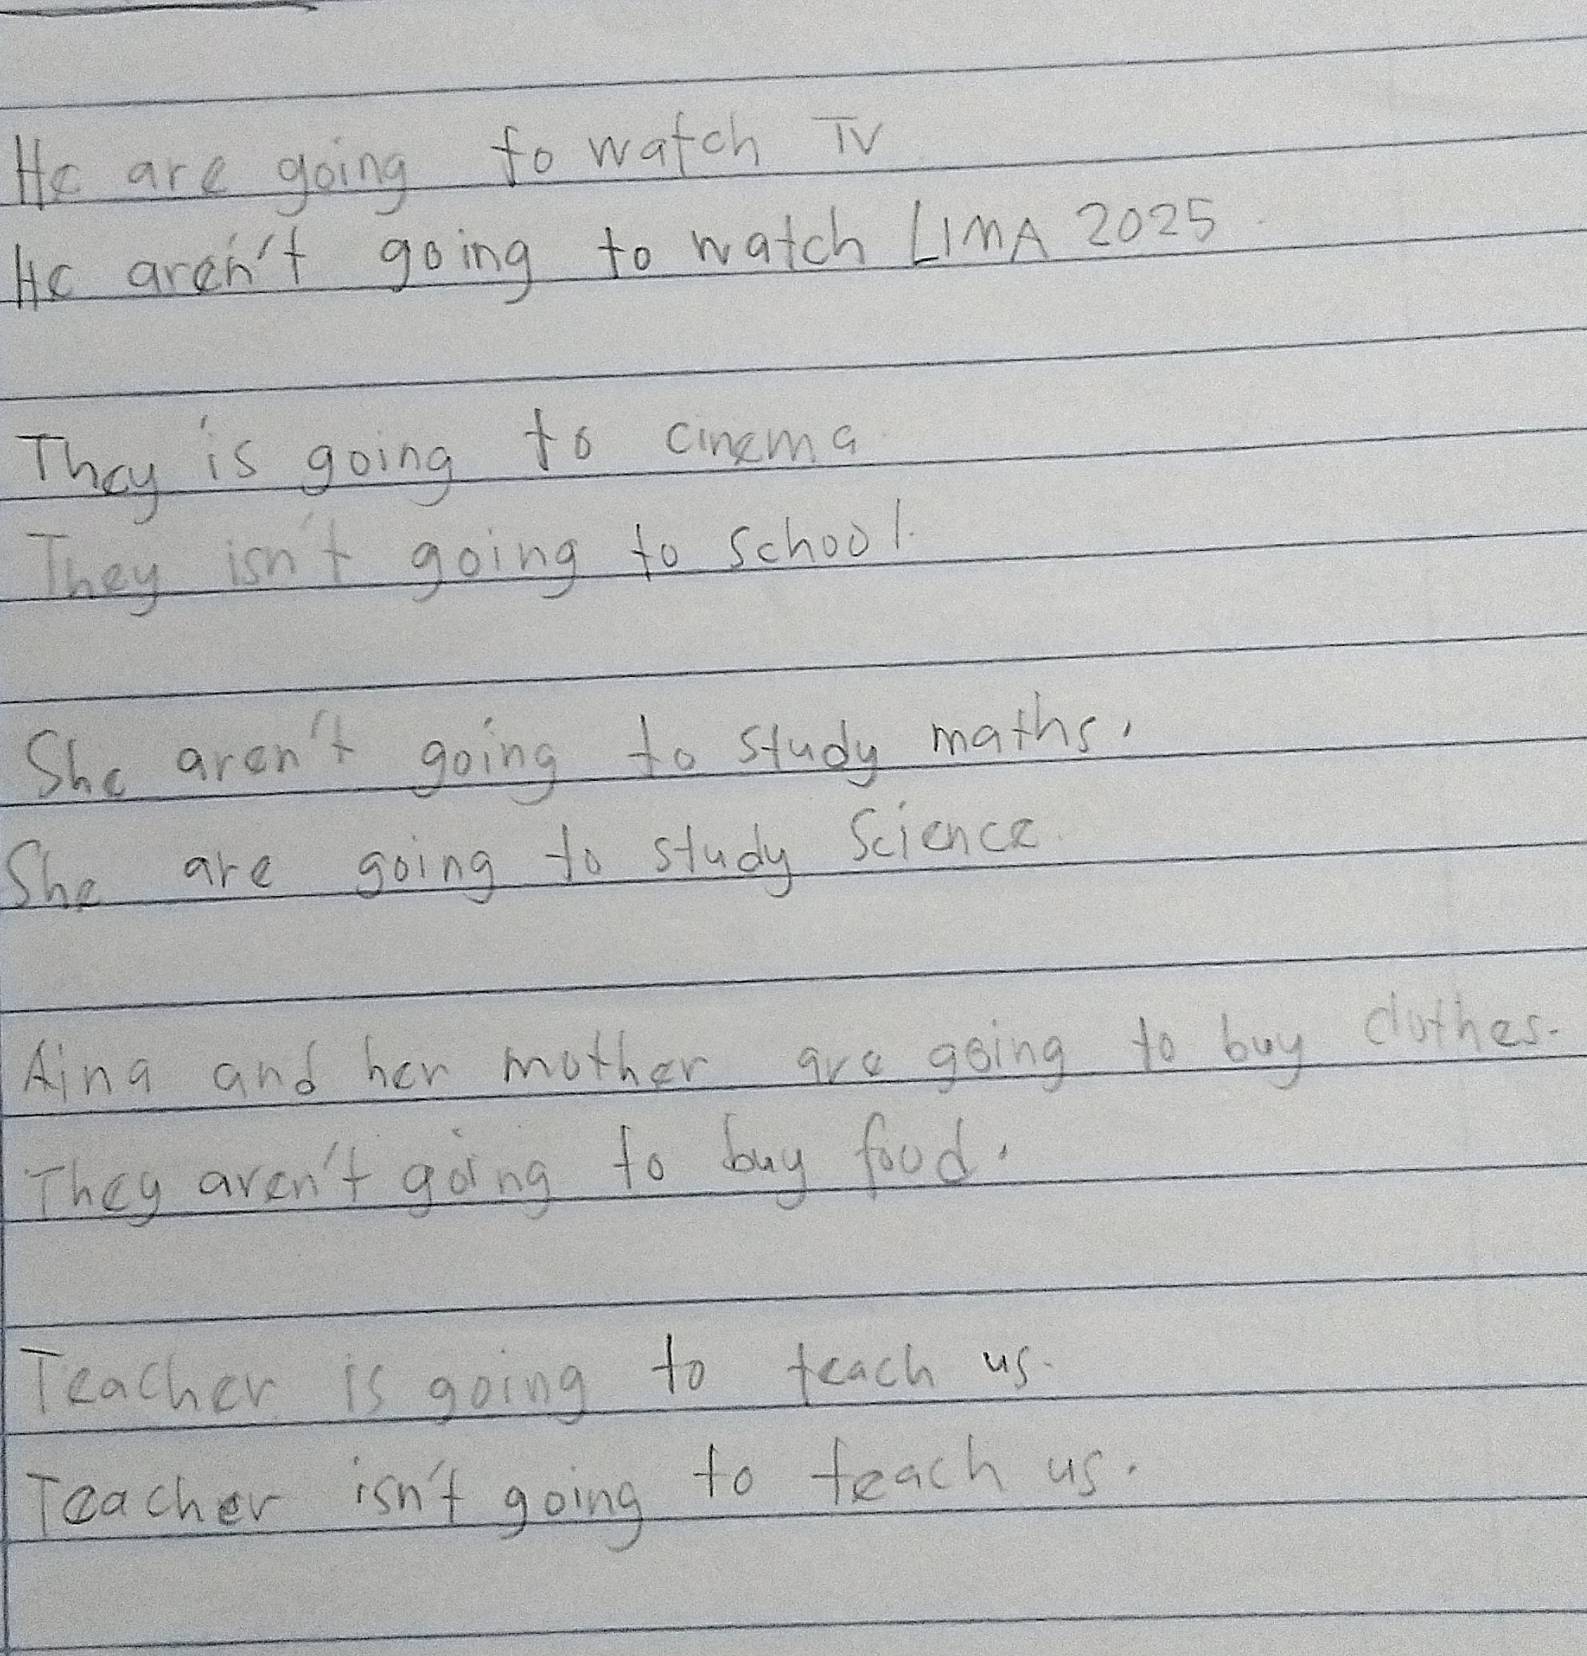 He are going to watch TV
He aren't going to watch LIMA 2025.
They is going to cinema.
They isn't going to school.
She aren't going to study maths.
She are going to study Science.
Aina and her mother are going to buy clothes.
They aren't going to buy food.
Teacher is going to teach us.
Teacher isn't going to teach us.